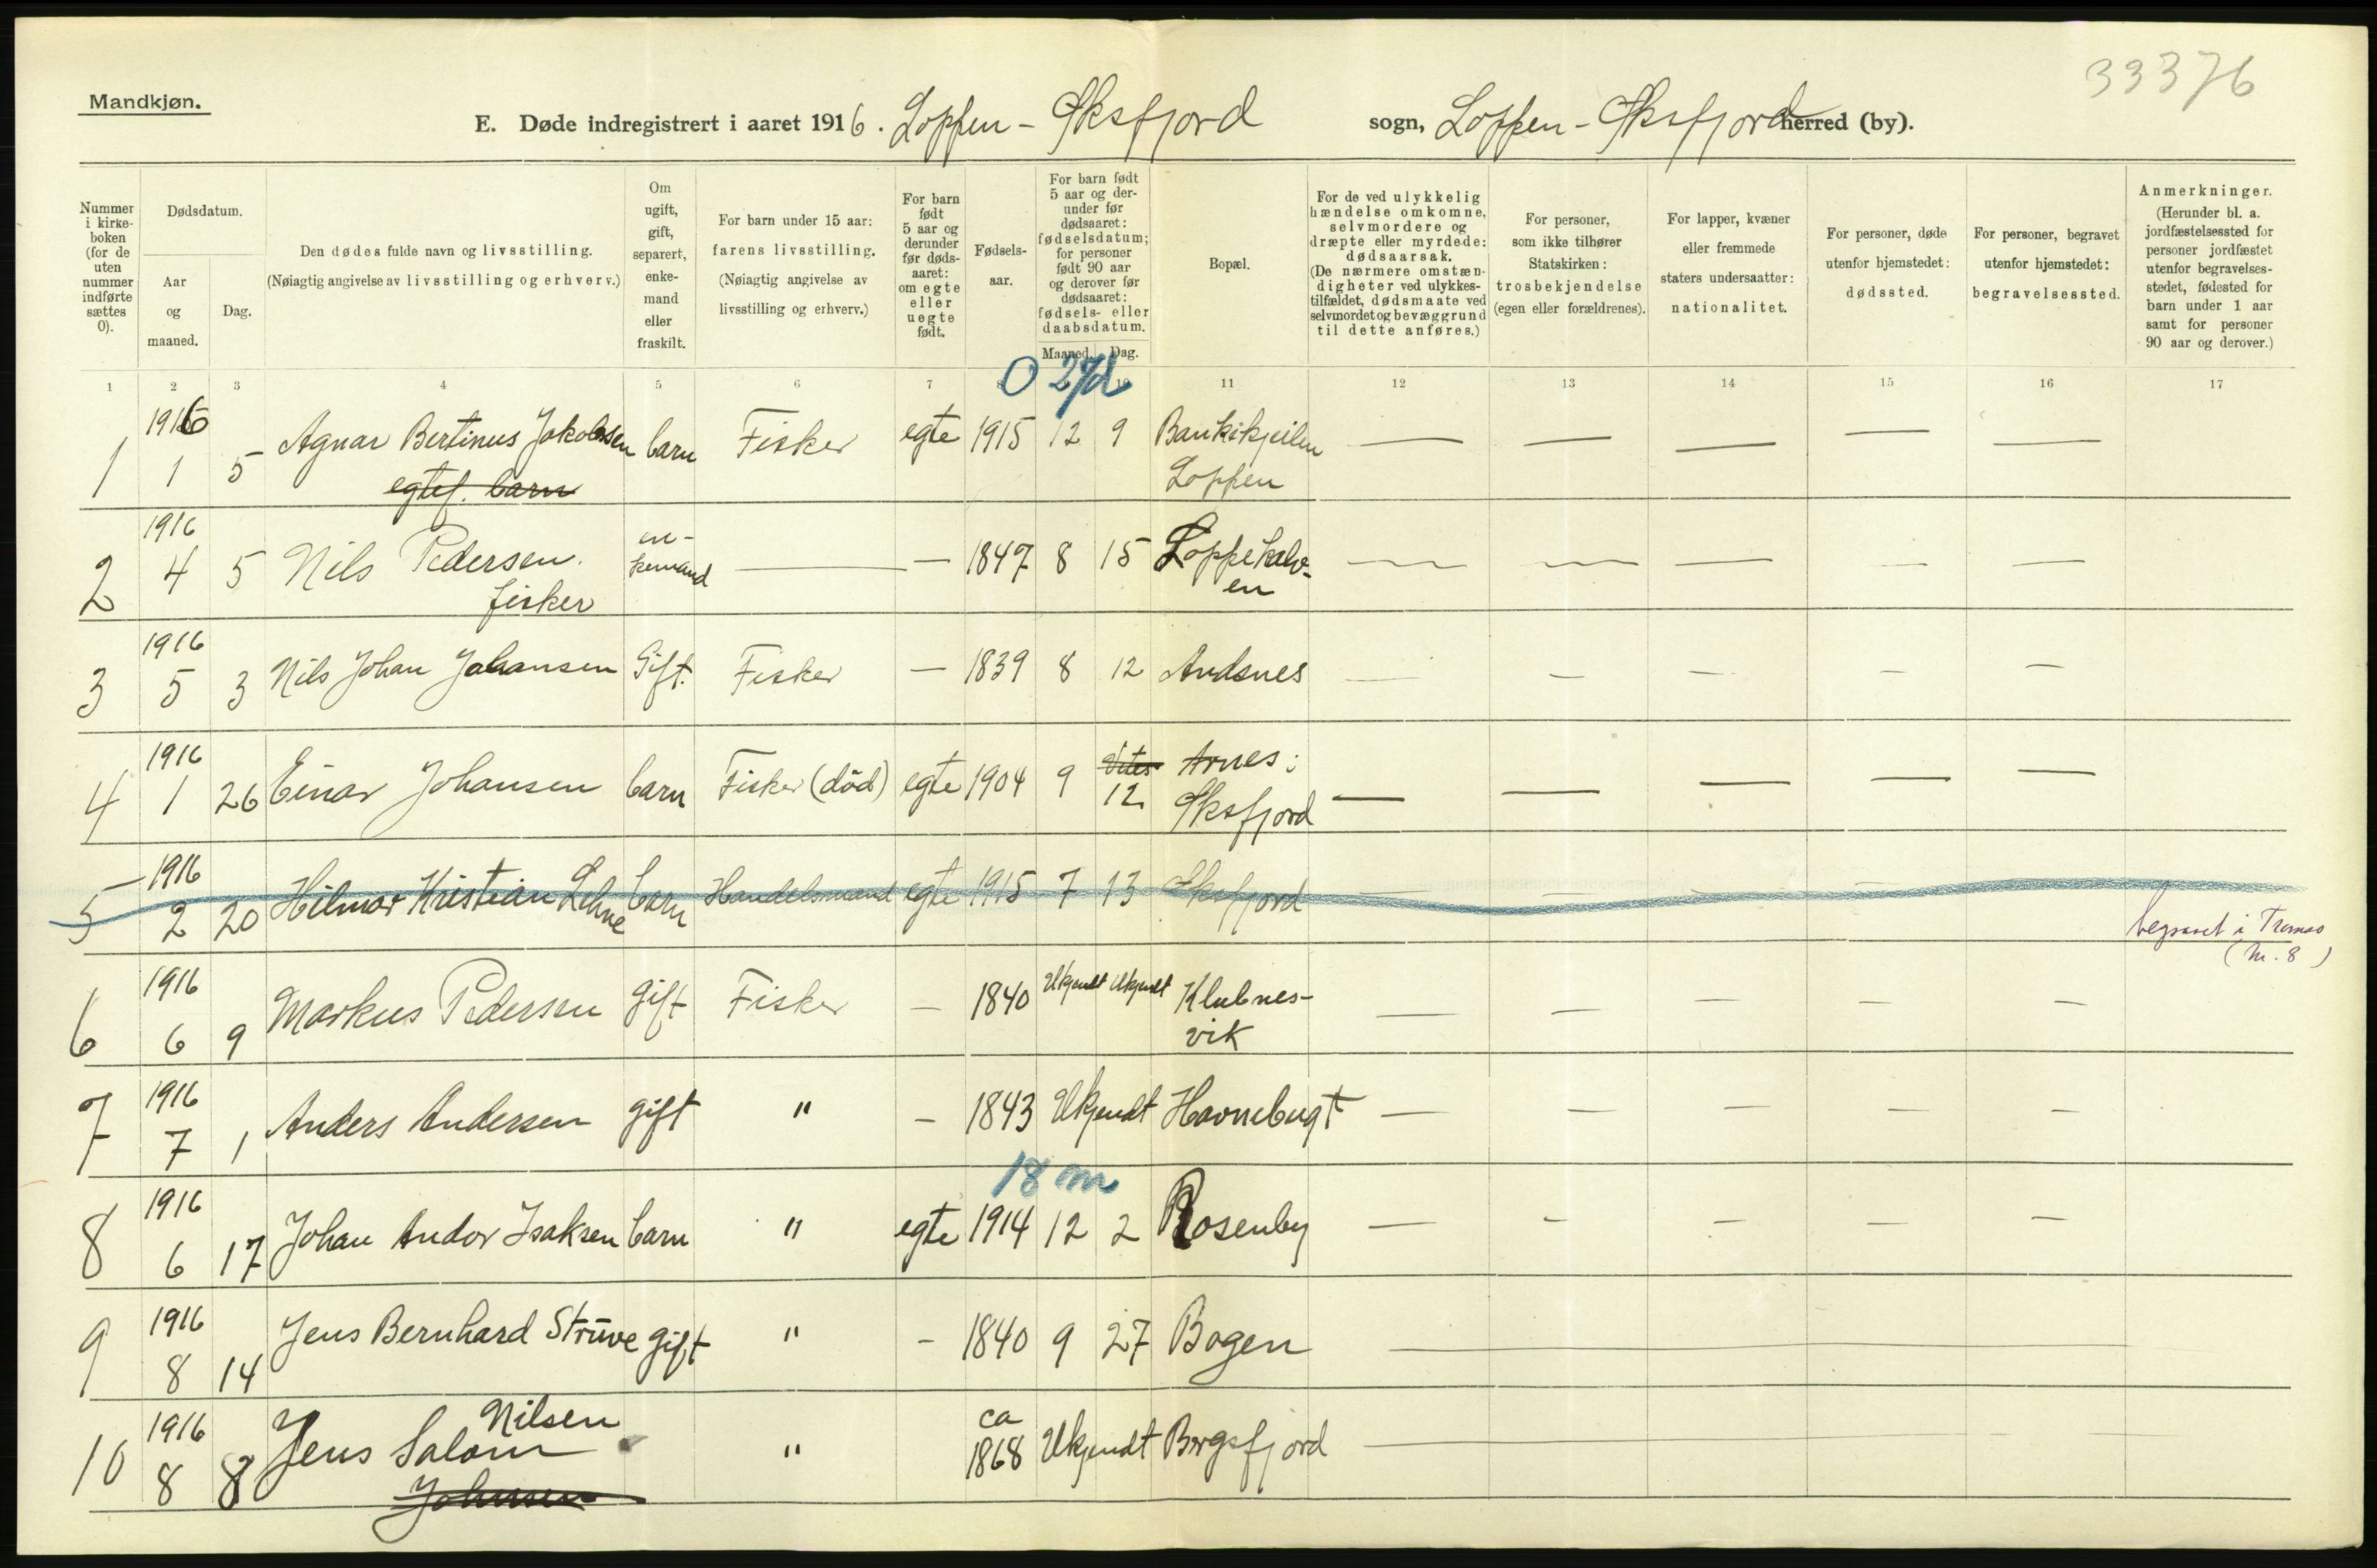 33376
Mandkjøn.
E. Døde indregistrert i aaret 1916. Loppen - Øksfjord sogn, Loppen - Øksfjord herred (by).
Nummer i kirkeboken (for de uten nummer indførte sættes 0).
Dødsdatum.
Aar og maaned.
Dag.
Den dødes fulde navn og livsstilling.
(Nøiagtig angivelse av livsstilling og erhverv.)
Om ugift, gift, separert, enkemand eller fraskilt.
For barn under 15 aar: farens livsstilling. (Nøiagtig angivelse av livsstilling og erhverv.)
For barn født 5 aar og derunder før dødsaaret: om egte eller uegte født.
Fødselsaar.
For barn født 5 aar og derunder før dødsaaret: fødselsdatum; for personer født 90 aar og derover før dødsaaret: fødsels- eller daabsdatum.
Maaned. Dag.
Bopæl.
For de ved ulykkelig hændelse omkomne, selvmordere og dræpte eller myrdede: dødsaarsak. (De nærmere omstændigheter ved ulykkestilfældet, dødsmaate ved selvmordet og bevæggrund til dette anføres.)
For personer, som ikke tilhører Statskirken: trosbekjendelse (egen eller forældrenes).
For lapper, kvæner eller fremmede staters undersaatter: nationalitet.
For personer, døde utenfor hjemstedet: dødssted.
For personer, begravet utenfor hjemstedet: begravelsessted.
Anmerkninger. (Herunder bl. a. jordfæstelsessted for personer jordfæstet utenfor begravelsesstedet, fødested for barn under 1 aar samt for personer 90 aar og derover.)
1 2 3 4 5 6 7 8 10 11 12 13 14 15 16 17
0 27d
1 1916 1 5 Agnar Bertinus Jakobsen barn Fisker egte 1915 12 9 Bankekjeilen
egtef. barn Loppen
2 1916 4 5 Nils Pedersen. en-kemand — — 1847 8 15 Loppekalv-
fisker en
3 1916 5 3 Nils Johan Johansen Gift. Fisker — 1839 8 12 Andsnes
4 1916 1 26 Einar Johansen barn Fisker (död) egte 1904 9 12 Arnes;
Øksfjord
5 1916 2 20 Hilmar Kristian Lehne barn Handelsmand egte 1915 7 13 Øksfjord
begravet i Tromsø
(M. 8)
6 1916 6 9 Markus Pedersen gift Fisker — 1840 Ukjendt Ukjendt Klubnes-
vik
7 1916 7 1 Anders Andersen gift " — 1843 Ukjendt Havnebugt
18 m
8 1916 6 17 Johan Andor Isaksen barn " egte 1914 12 2 Rosenby
9 1916 8 14 Jens Bernhard Strüve gift " — 1840 9 27 Bogen
10 1916 8 8 Jens Salom Nilsen " ca 1868 Ukjendt Bergsfjord
Johnsen